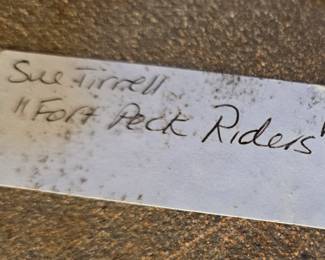 Sue Tirrell
"Fort Peck Riders"